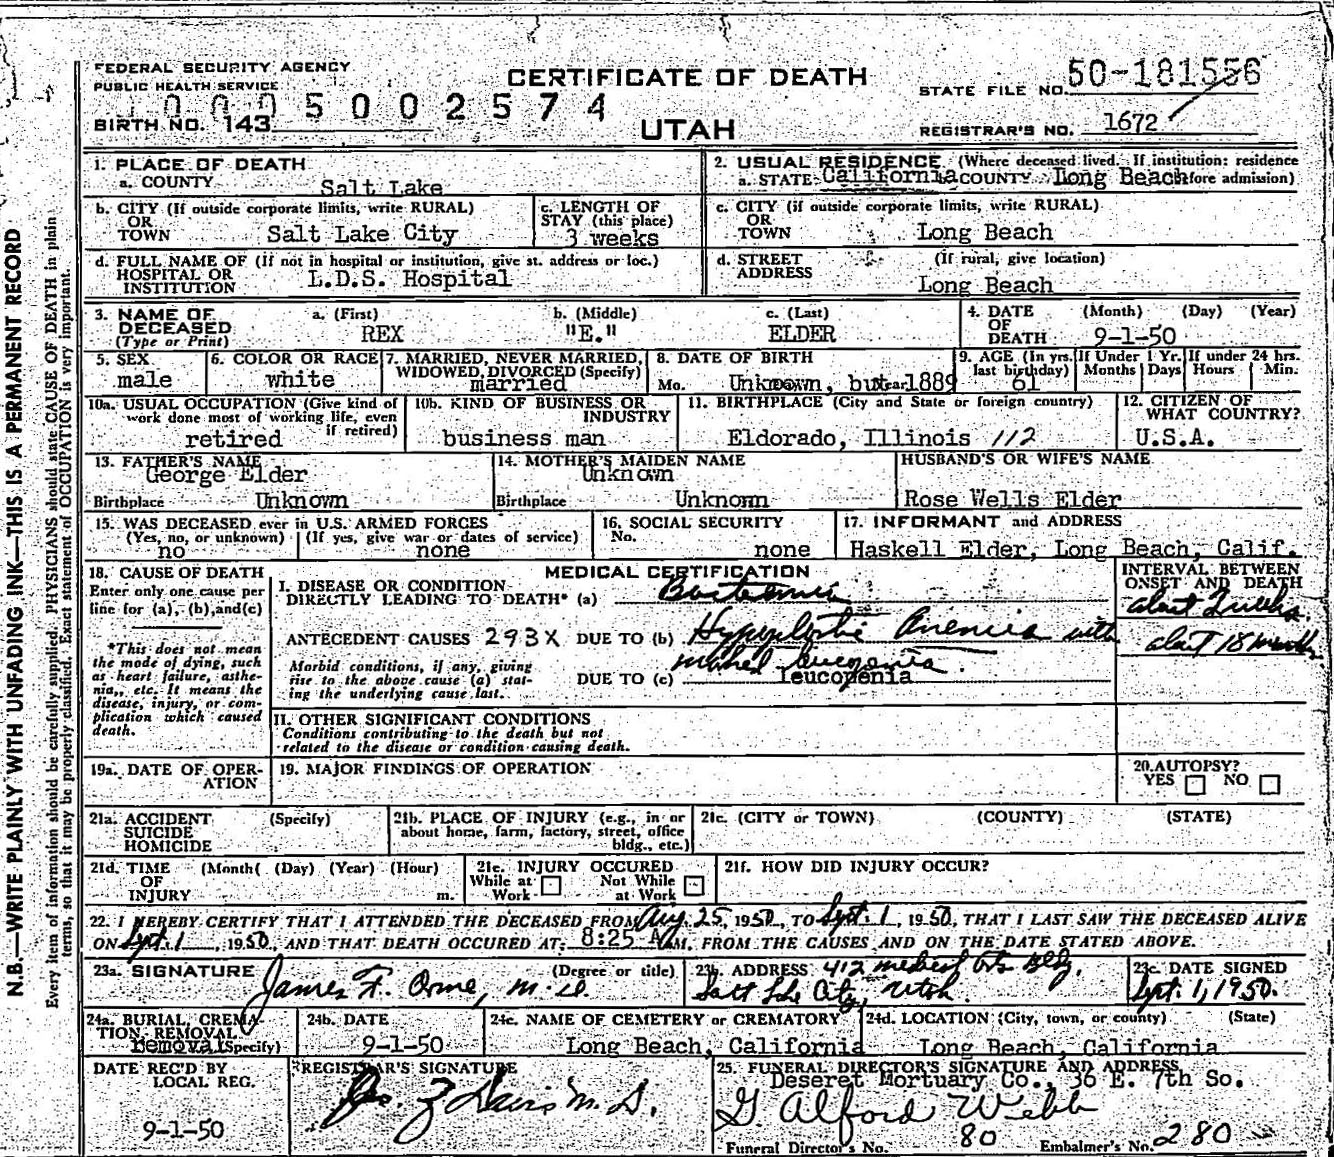 FEDERAL SECURITY AGENCY
PUBLIC HEALTH SERVICE
CERTIFICATE OF DEATH
STATE FILE NO. 50-181556
5002574
BIRTH NO. 143
UTAH
REGISTRAR'S NO. 1672
1. PLACE OF DEATH
a. COUNTY Salt Lake
2. USUAL RESIDENCE (Where deceased lived. If institution: residence before admission)
a. STATE California COUNTY Long Beach
b. CITY (If outside corporate limits, write RURAL)
OR
TOWN Salt Lake City
c. LENGTH OF
STAY (this place)
3 weeks
c. CITY (if outside corporate limits, write RURAL)
OR
TOWN Long Beach
d. FULL NAME OF (If not in hospital or institution, give st. address or loc.)
HOSPITAL OR
INSTITUTION L.D.S. Hospital
d. STREET (If rural, give location)
ADDRESS
Long Beach
3. NAME OF
DECEASED
(Type or Print)
a. (First) REX
b. (Middle) "E."
c. (Last) ELDER
4. DATE
OF
DEATH
(Month) (Day) (Year)
9-1-50
5. SEX
male
6. COLOR OR RACE
white
7. MARRIED, NEVER MARRIED,
WIDOWED, DIVORCED (Specify)
married
8. DATE OF BIRTH
Mo. Unknown, but Year 1889
9. AGE (In yrs.
last birthday)
61
If Under 1 Yr.
Months Days
If under 24 hrs.
Hours Min.
10a. USUAL OCCUPATION (Give kind of
work done most of working life, even
if retired)
retired
10b. KIND OF BUSINESS OR
INDUSTRY
business man
11. BIRTHPLACE (City and State or foreign country)
Eldorado, Illinois 112
12. CITIZEN OF
WHAT COUNTRY?
U.S.A.
13. FATHER'S NAME
George Elder
Birthplace Unknown
14. MOTHER'S MAIDEN NAME
Unknown
Birthplace Unknown
HUSBAND'S OR WIFE'S NAME
Rose Wells Elder
15. WAS DECEASED ever in U.S. ARMED FORCES
(Yes, no, or unknown) (If yes, give war or dates of service)
no none
16. SOCIAL SECURITY
No. none
17. INFORMANT and ADDRESS
Haskell Elder, Long Beach, Calif.
18. CAUSE OF DEATH
Enter only one cause per
line for (a), (b), and (c)
*This does not mean
the mode of dying, such
as heart failure, asthe-
nia, etc. It means the
disease, injury, or com-
plication which caused
death.
MEDICAL CERTIFICATION
I. DISEASE OR CONDITION
DIRECTLY LEADING TO DEATH* (a) Bacteremia
ANTECEDENT CAUSES 293X DUE TO (b) Hypoplastic Anemia with
marked leucopenia.
Morbid conditions, if any, giving
rise to the above cause (a) stat-
ing the underlying cause last.
DUE TO (c) leucopenia
INTERVAL BETWEEN
ONSET AND DEATH
about 2 weeks
about 18 months
II. OTHER SIGNIFICANT CONDITIONS
Conditions contributing to the death but not
related to the disease or condition causing death.
19a. DATE OF OPER-
ATION
19. MAJOR FINDINGS OF OPERATION
20. AUTOPSY?
YES NO
21a. ACCIDENT (Specify)
SUICIDE
HOMICIDE
21b. PLACE OF INJURY (e.g., in or
about home, farm, factory, street, office
bldg., etc.)
21c. (CITY or TOWN) (COUNTY) (STATE)
21d. TIME (Month( (Day) (Year) (Hour)
OF
INJURY m.
21e. INJURY OCCURED
While at Work Not While at Work
21f. HOW DID INJURY OCCUR?
22. I HEREBY CERTIFY THAT I ATTENDED THE DECEASED FROM Aug 25, 1950, TO Sept. 1, 1950, THAT I LAST SAW THE DECEASED ALIVE
ON Sept. 1, 1950, AND THAT DEATH OCCURED AT 8:25 A.M. FROM THE CAUSES AND ON THE DATE STATED ABOVE.
23a. SIGNATURE (Degree or title)
James F. Orme, M.D.
23b. ADDRESS 412 Medical Arts Bldg.
Salt Lake City, Utah.
23c. DATE SIGNED
Sept. 1, 1950.
24a. BURIAL, CREMA-
TION, REMOVAL
(Specify) Removal
24b. DATE
9-1-50
24c. NAME OF CEMETERY or CREMATORY
Long Beach, California
24d. LOCATION (City, town, or county) (State)
Long Beach, California
DATE REC'D BY
LOCAL REG.
9-1-50
REGISTRAR'S SIGNATURE
25. FUNERAL DIRECTOR'S SIGNATURE AND ADDRESS
Deseret Mortuary Co., 36 E. 7th So.
G. Alford Webb
Funeral Director's No. 80 Embalmer's No. 280
N.B.—WRITE PLAINLY WITH UNFADING INK—THIS IS A PERMANENT RECORD
Every item of information should be carefully supplied. PHYSICIANS should state CAUSE OF DEATH in plain
terms, so that it may be properly classified. Exact statement of OCCUPATION is very important.